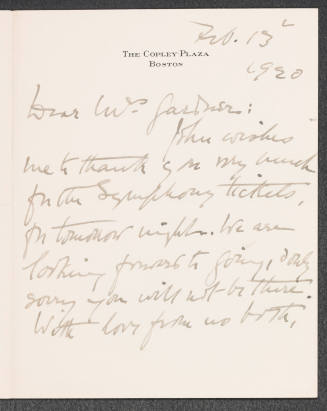 Feb. 13
1920
THE COPLEY-PLAZA
BOSTON
Dear Mrs Gardner:
John wishes
me to thank you very much
for the Symphony tickets,
for tomorrow night. We are
looking forward to going, & only
sorry you will not be there.
With love from us both,